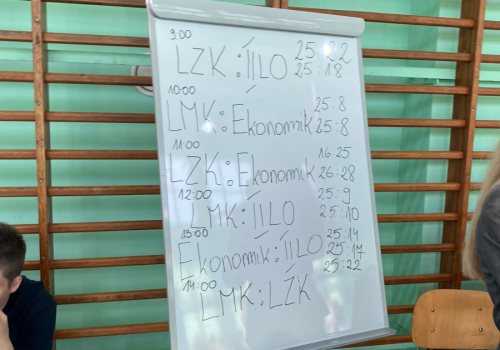 9:00
LZK : IILO 25 : 22
25 : 18
10:00
LMK : Ekonomik 25 : 8
25 : 8
11:00
LZK : Ekonomik 16 : 25
26 : 28
12:00
LMK : IILO 25 : 9
25 : 10
13:00
Ekonomik : IILO 25 : 14
25 : 17
14:00
LMK : LŻK 25 : 22